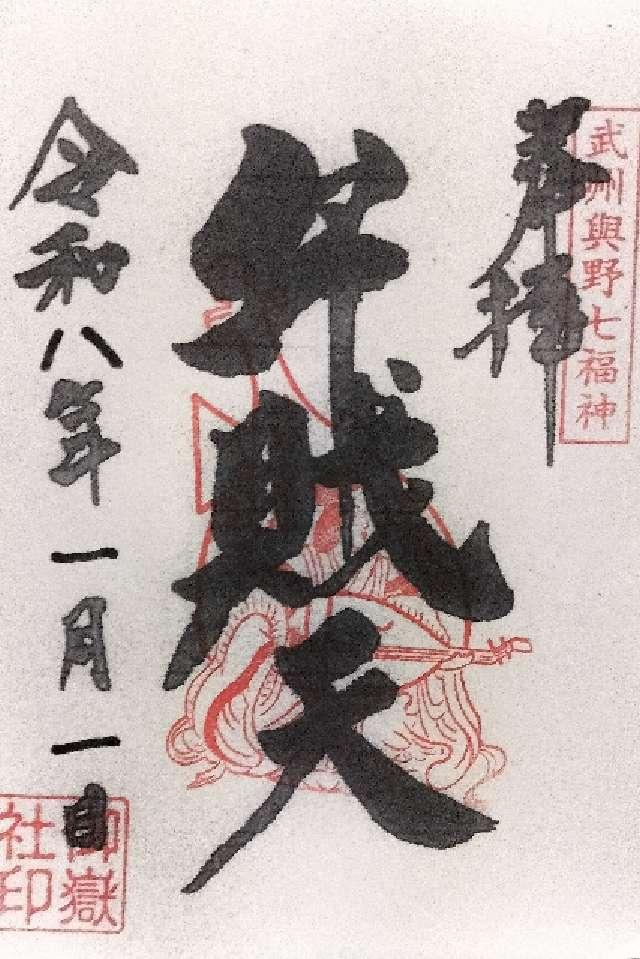 武州與野七福神
奉拝
弁財天
令和八年一月一日
御嶽
社印